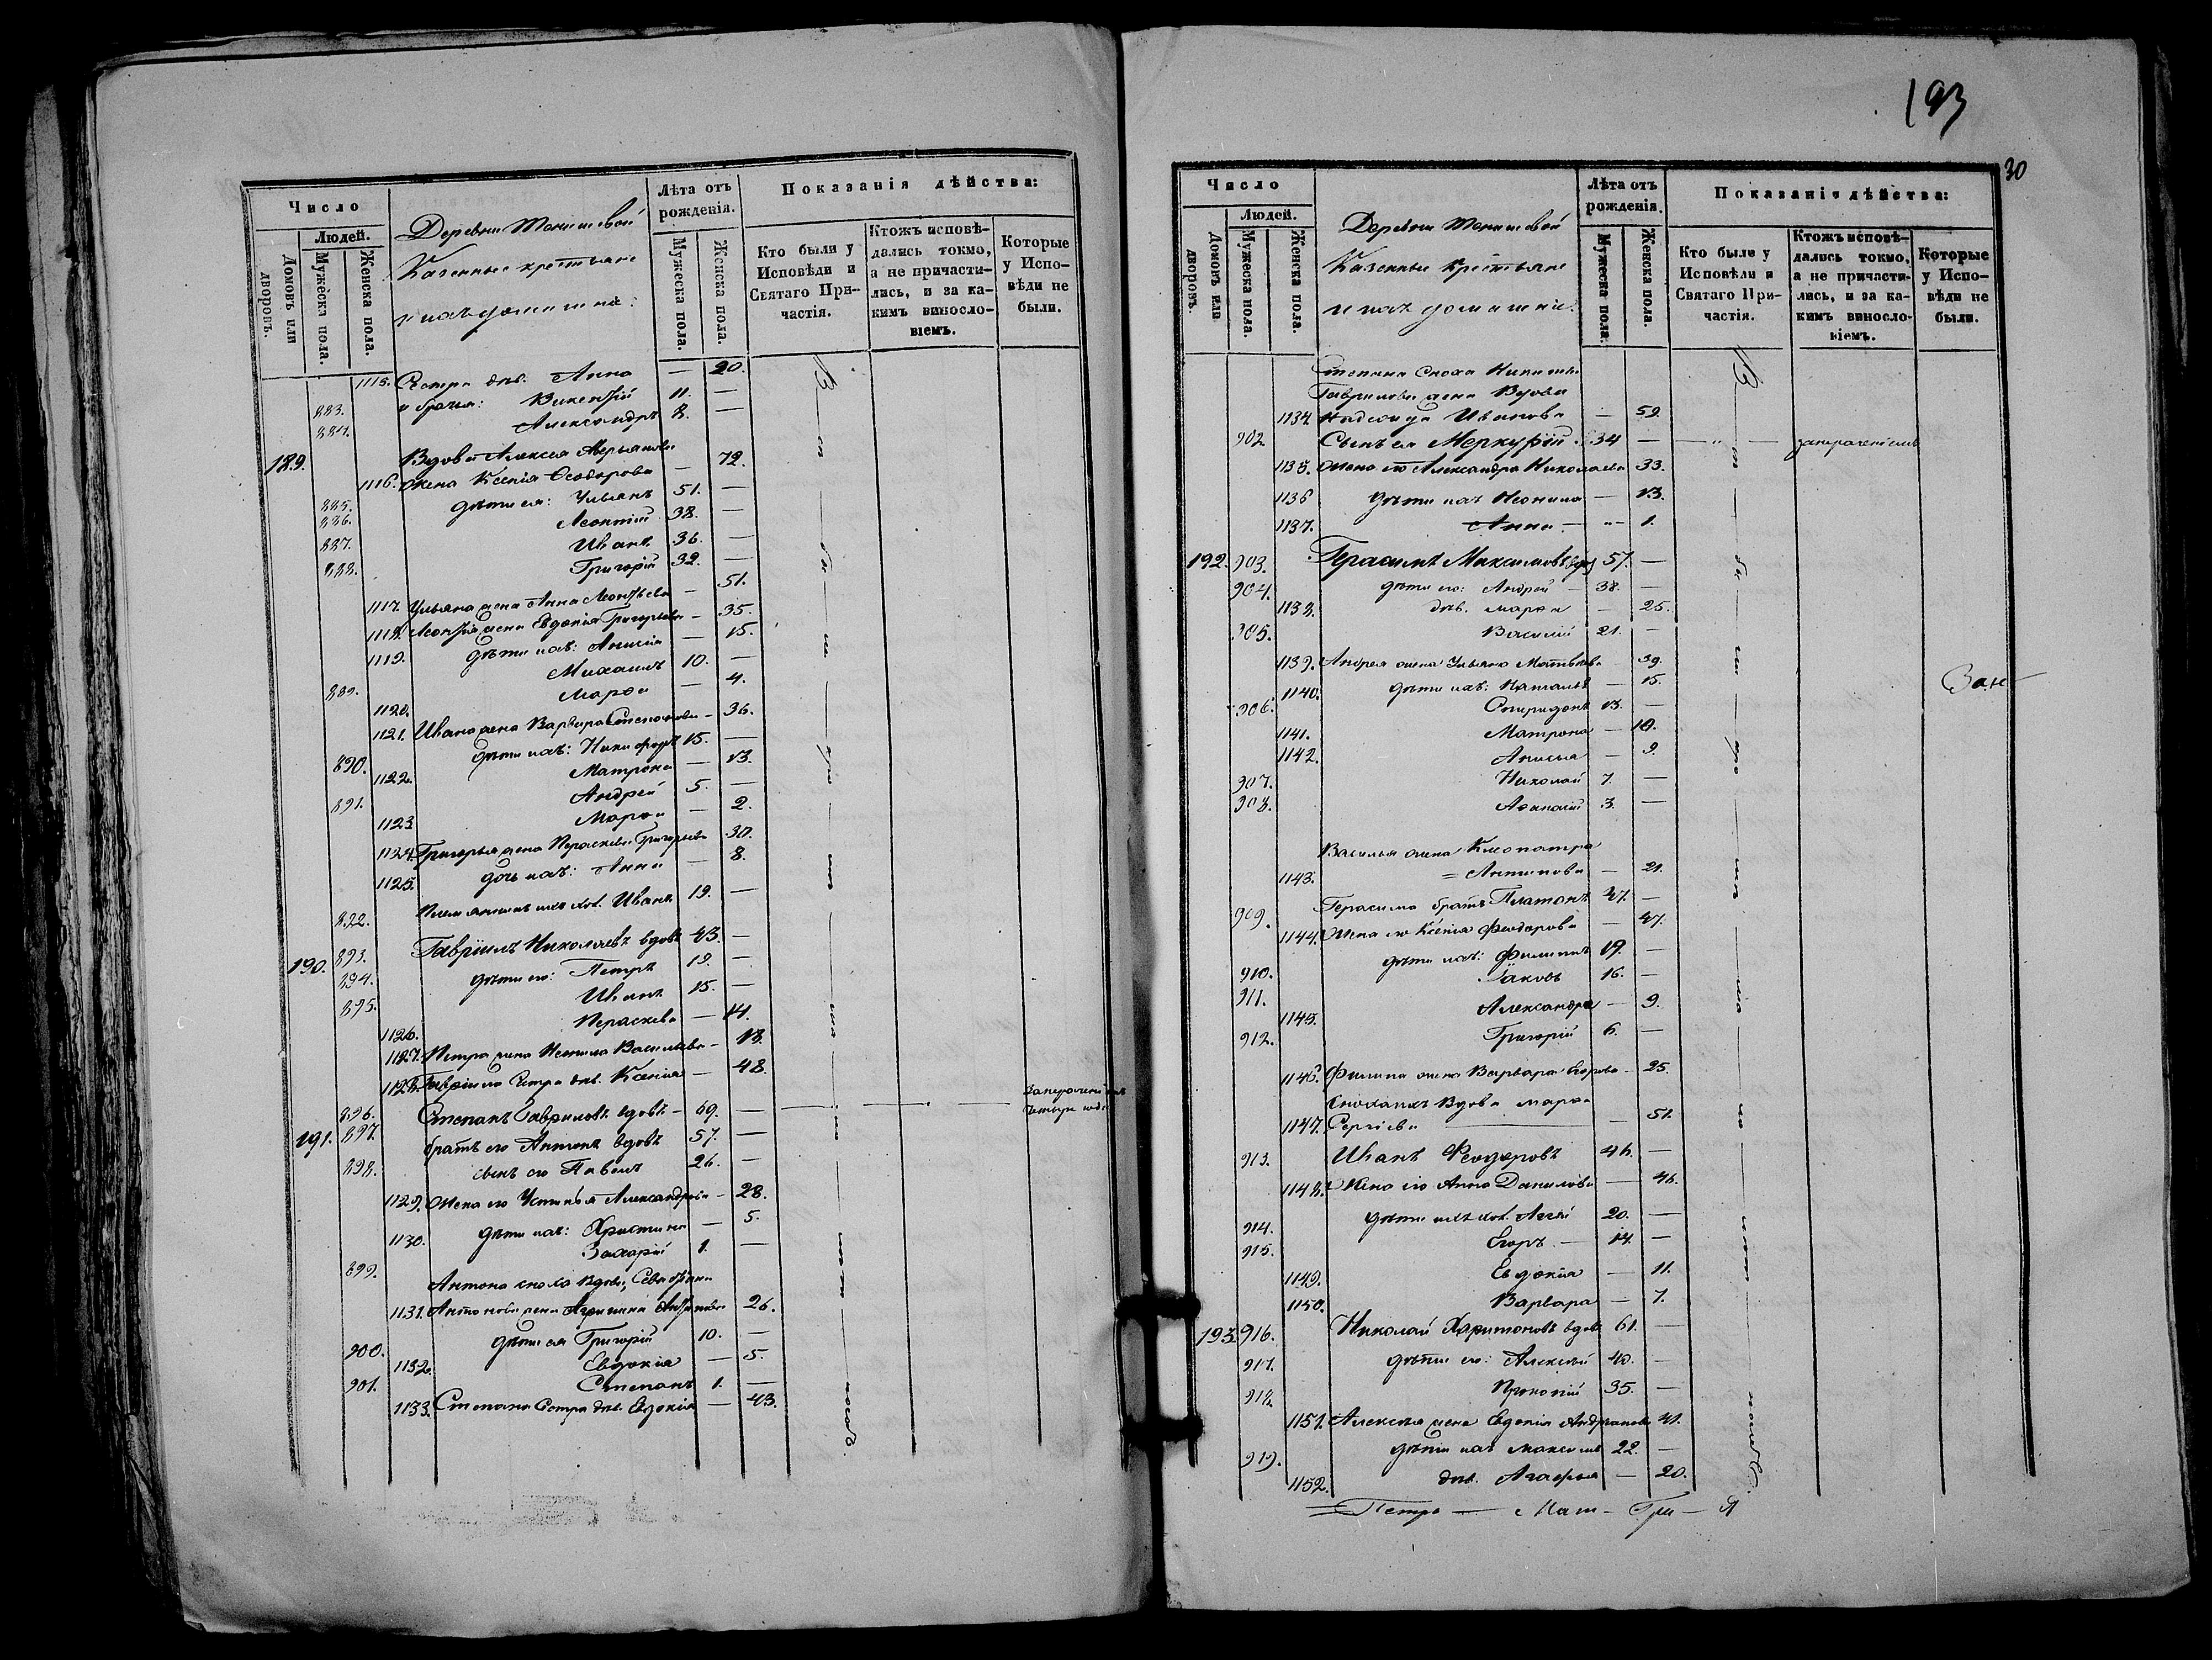 193
30
Число
Людей.
Домовъ или дворовъ.
Мужеска пола.
Женска пола.
Деревни
Казенные крестьяне
и ихъ домашніе:
Лѣта отъ рожденія.
Мужеска пола.
Женска пола.
Показанія дѣйства:
Кто были у Исповѣди и Святаго Причастія.
Ктожъ исповѣдались токмо, а не причастились, и за какимъ винословіемъ.
Которые у Исповѣди не были.
1115. Сестра дѣв. Анна — 20.
883. и братья: Викентій 11. —
884. Александръ 8. —
189. Вдова Алексея
1116. жена Ксенія Ѳеодорова — 72.
885. дѣти ея: Ульянъ 51. —
886. Леонтій 38. —
887. Иванъ 36. —
888. Григорій 32. —
1117. Ульяна жена Анна Леонтьева — 51.
1118. Леонтія жена Евдокія Григорьева — 35.
1119. дѣти ихъ: Анисія — 15.
889. Михаилъ 10. —
1120. Марѳа — 4.
1121. Ивана жена Варвара Степанова — 36.
890. дѣти ихъ: Никифоръ 15. —
1122. Матрона — 13.
891. Андрей 5. —
1123. Марѳа — 2.
1124. Григорья жена Параскева Григорьева 30.
1125. дочь ихъ: Анна — 8.
892. Племянникъ ихъ хол. Иванъ 19. —
190. 893. Гавріилъ Николаевъ вдовъ 43. —
894. дѣти его: Петръ 19. —
895. Иванъ 15. —
1126. Параскева — 14.
1127. Петра жена Васильева — 18.
1128. Гавріила сестра дѣв. Ксенія — 48.
191. 896. Степанъ Гавриловъ вдовъ — 69. —
897. братъ его Антонъ вдовъ 57. —
898. сынъ его Павелъ 26. —
1129. Жена его Устинья Александрова — 28.
1130. дѣти ихъ: Христина — 5.
899. Захарій 1. —
Антона сноха вдова,
1131. Антонова жена 26.
900. дѣти ея Григорій 10. —
1132. Евдокія — 5.
901. Степанъ 1. —
1133. Степана сестра дѣв. Евдокія — 43.
Число
Людей.
Домовъ или дворовъ.
Мужеска пола.
Женска пола.
Деревни
Казенные крестьяне
и ихъ домашніе.
Лѣта отъ рожденія.
Мужеска пола.
Женска пола.
Показанія дѣйства:
Кто были у Исповѣди и Святаго Причастія.
Ктожъ исповѣдались токмо, а не причастились, и за какимъ винословіемъ.
Которые у Исповѣди не были.
Степана сноха Никиты
Гаврилова жена вдова
1134. Надежда Иванова — 59.
902. Сынъ ея Меркурій 34 —
1135. Жена его Александра Николаева 33.
1136 дѣти ихъ Неонила — 13.
1137. Анна — 1.
192. 903. Герасимъ Максимовъ вдов 57. —
904. дѣти его: Андрей — 38. —
1138. дѣв. Марѳа — 25.
905. Василій 21. —
1139. Андрея жена Ульяна Матвѣева 39.
1140. дѣти ихъ: Наталья — 15.
906. Спиридонъ 13. —
1141. Матрона — 10.
1142. Анисья — 9.
907. Николай 7. —
908. Аѳанасій 3. —
Василья жена Клеопатра
1143. Антипова — 21.
909. Герасима братъ Платонъ 47. —
1144. Жена его Ксенія Феодорова — 47.
910. дѣти ихъ: Филиппъ 19. —
911. Іаковъ 16. —
1145. Александра — 9.
912. Григорій 6. —
1146. Филиппа жена Варвара Егорова — 25.
Сноха ихъ вдова Марѳа
1147. Сергіева — 51.
913. Иванъ Феодоровъ 46. —
1148. Жена его Анна Данилова — 46.
914. дѣти ихъ хол. 20. —
915. Егоръ — 14. —
1149. Евдокія — 11.
1150. Варвара — 7.
193. 916. Николай Харитоновъ вдовъ 61. —
917. дѣти его: Алексѣй 40. —
918. Прокопій 35. —
1151. Алексѣя жена Евдокія 41.
919. дѣти ихъ Максимъ 22. —
1152. дѣв. Агафья — 20.